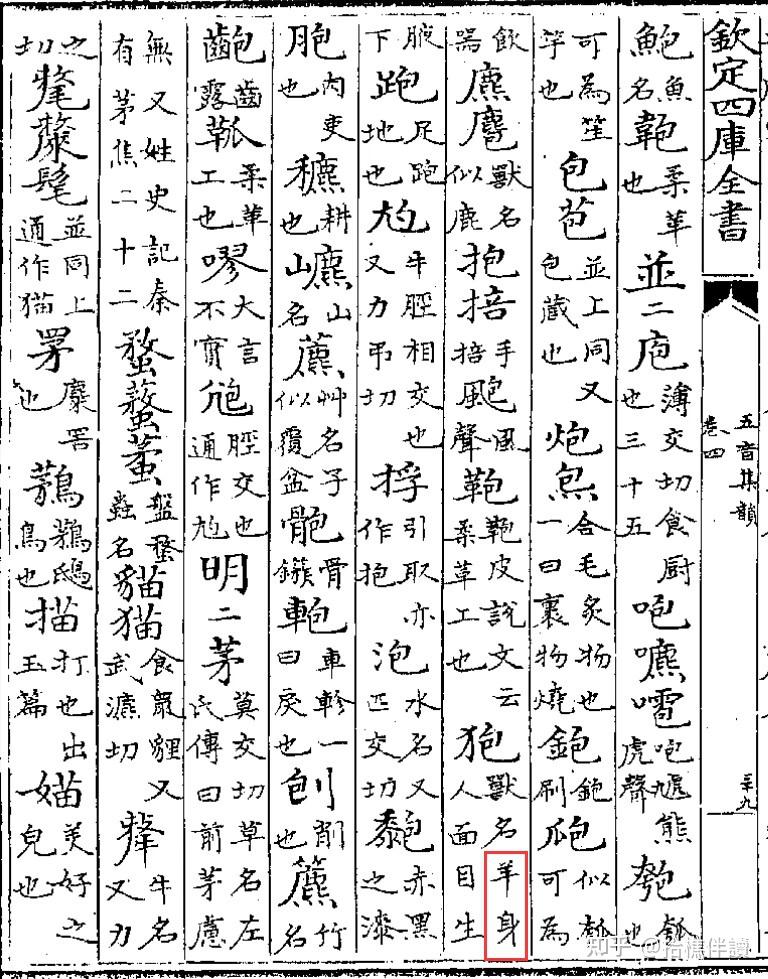 欽定四庫全書
五音集韻
卷四
三十九
鮑魚名鞄柔革也並二庖薄交切食厨也三十五咆咆虓熊虎聲匏瓠也
可為笙竽也包苞並上同又包藏也炮炰合毛炙物也一曰裹物燒鉋鉋刷瓟似瓠可為
飲器麃麅獸名似鹿抱掊手掊颮風聲鞄鞄皮說文云柔革工也狍獸名羊身人面目生
腋下跑足跑地也尥牛脛相交也又力弔切捊引取亦作抱泡水名又匹交切䵢赤黑之漆
胞肉吏也穮耕也山名藨艸名子似覆盆骲骨鏃軳車軫一曰戾也刨削也竹名
齙齒露柔革工也嘐大言不實脛交也通作尥明二茅莫交切草名左氏傳曰前茅慮
無又姓史記秦有茅焦二十二蝥蟊盤蝥蟲名貓猫食鼠貍又武瀌切犛牛名又力
之切氂髦並同上通作猫罞麋罟也鶜鶜鴟鳥也描打也出玉篇媌美好之皃也
知乎 @拾樵伴讀